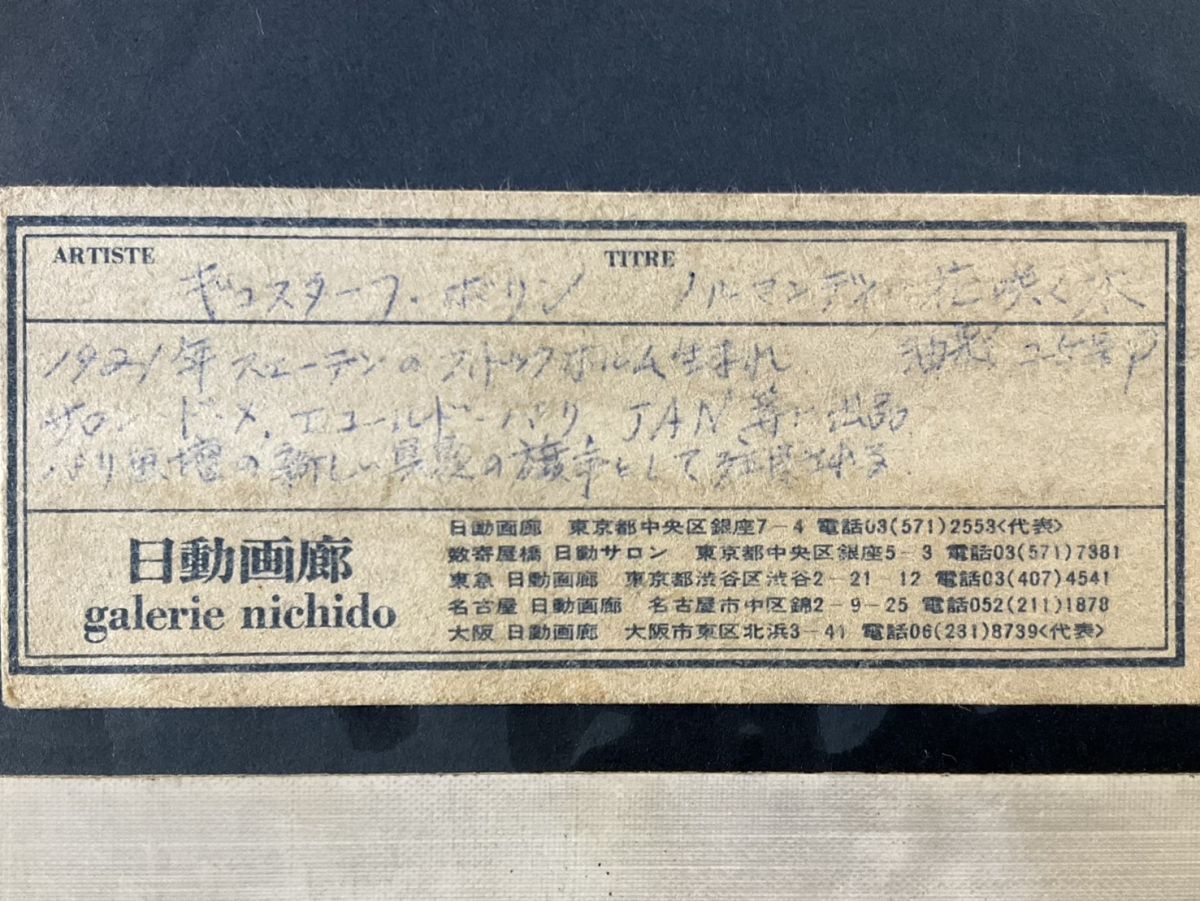 ARTISTE
ギュスターフ・ボリン
TITRE
ノルマンディー花咲く木
油彩 25号P
1921年 スエーデンのストックホルム生まれ
サロン・ド・メ、エコールド・パリ JAN 等に出品
パリ画壇の新しい具象の旗手として
日動画廊
galerie nichido
日動画廊 東京都中央区銀座7-4 電話03(571)2553<代表>
数寄屋橋 日動サロン 東京都中央区銀座5-3 電話03(571)7381
東急 日動画廊 東京都渋谷区渋谷2-21-12 電話03(407)4541
名古屋 日動画廊 名古屋市中区錦2-9-25 電話052(211)1878
大阪 日動画廊 大阪市東区北浜3-41 電話06(231)8739<代表>